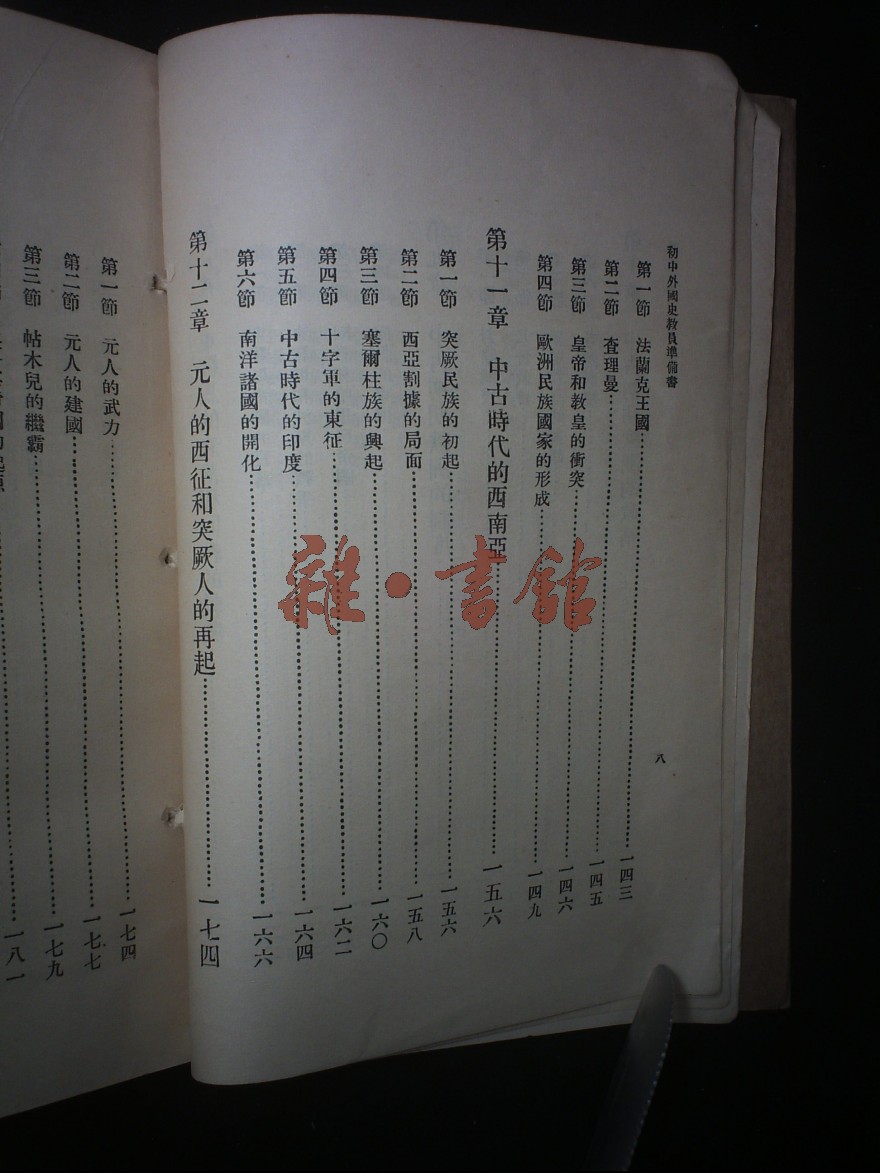 初中外國史教員準備書
八
第一節 法蘭克王國……一四三
第二節 査理曼……一四五
第三節 皇帝和教皇的衝突……一四六
第四節 歐洲民族國家的形成……一四九
第十一章 中古時代的西南亞……一五六
第一節 突厥民族的初起……一五六
第二節 西亞割據的局面……一五八
第三節 塞爾柱族的興起……一六〇
第四節 十字軍的東征……一六二
第五節 中古時代的印度……一六四
第六節 南洋諸國的開化……一六六
第十二章 元人的西征和突厥人的再起……一七四
第一節 元人的武力……一七四
第二節 元人的建國……一七七
第三節 帖木兒的繼霸……一七九
一八一
雜·書館